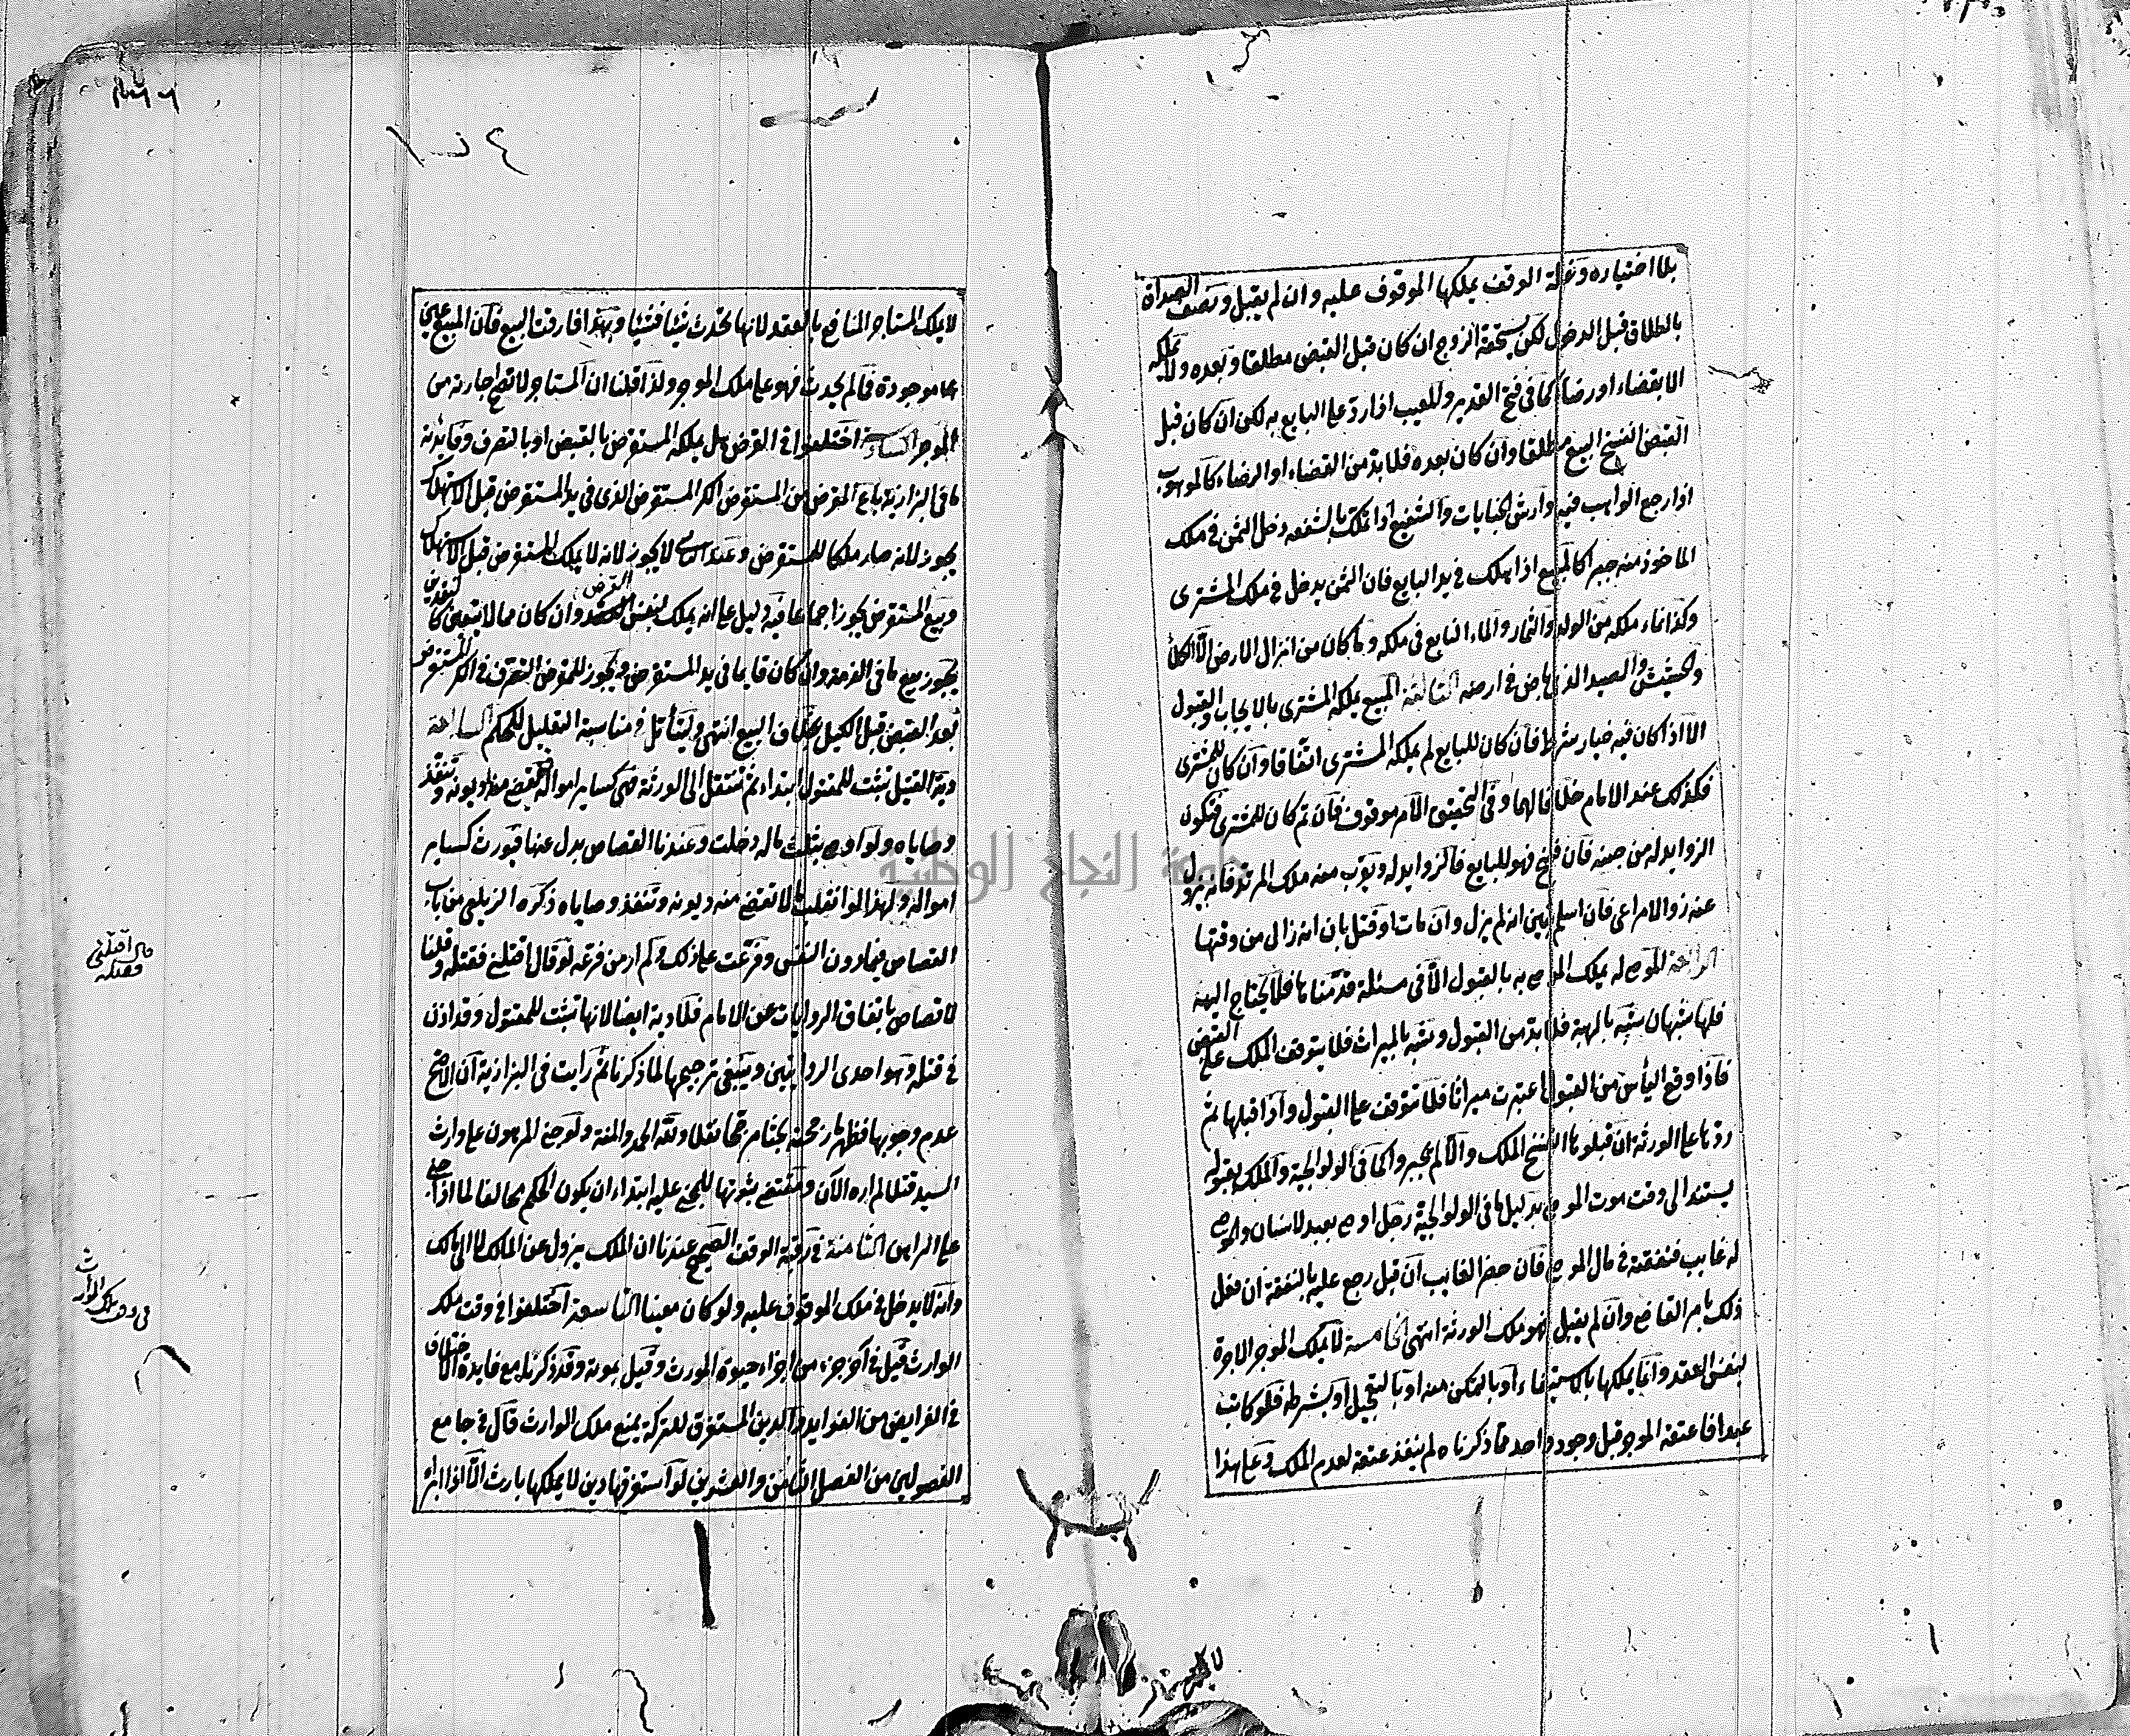 بلا اختياره وغلة الوقف يملكها الموقوف عليه وان لم يقبل ونصف الصداق
بالطلاق قبل الدخول لكن يستحقه الزوج ان كان قبل القبض مطلقا وبعده ولا يملكه
الا بقضاء او رضاء كما في فتح القدير والمعيب اذا رد على البايع به لكن ان كان قبل
القبض انفسخ البيع مطلقا وان كان بعده فلا بد من القضاء او الرضاء كالموهوب
اذا رجع الواهب فيه وارش الجنايات والشفيع اذا تملك بالشفعه دخل الثمن في ملك
الماخوذ منه جبرا كالمبيع اذا هلك في يد البايع فان الثمن يدخل في ملك المشترى
وكذا نماء ملكه من الولد والثمار والماء النابع في ملكه وما كان من انزال الارض الا الكلأ
والحشيش والصيد الذي باض في ارضه الثالثة المبيع يملكه المشترى بالايجاب والقبول
الا اذا كان فيه خيار شرط فان كان للبايع لم يملكه المشترى اتفاقا وان كان للمشترى
فكذلك عند الامام خلافا لهما وفي التحقيق الامر موقوف فان تم كان للمشترى فتكون
الزوايد له من حينه فان فسخ فهو للبايع فالزوايد له ويقرب منه ملك المرتد فانه يزول
عنه زوالا مراعى فان اسلم تبين انه لم يزل وان مات او قتل بان انه زال من وقتها
الرابعة الموصى له يملك الموصى به بالقبول الا في مسئلة قدمناها فلا يحتاج اليه
فلها شبهان شبه بالهبة فلا بد من القبول وشبه بالميراث فلا يتوقف الملك على القبض
فاذا وقع اليأس من القبول اعتبرت ميراثا فلا تتوقف على القبول واذا قبلها ثم
ردها على الورثة ان قبلوها انفسخ الملك والا لم يجبروا كما في الولوالجية والملك بقوله
يستند الى وقت موت الموصى بدليل ما في الولوالجية رجل اوصى بعبد لانسان والموصى
له غايب فنفقته في مال الموصى فان حضر الغايب ان قبل رجع عليه بالنفقة ان فعل
ذلك بامر القاضي وان لم يقبل فهو ملك الورثة انتهى الخامسة لا يملك الموجر الاجرة
بنفس العقد وانما يملكها بالاستيفاء او بالتمكن منه او بالتعجيل او بشرطه فلو كانت
عبدا فاعتقه الموجر قبل وجود واحد مما ذكرناه لم ينفذ عتقه لعدم الملك وعلى هذا
١٦٤
لا يملك المستاجر المنافع بالعقد لانها تحدث شيئا فشيئا وبهذا فارقت البيع فان المبيع عين
موجودة فما لم يحدث فهو على ملك الموجر ولذا قلنا ان المستاجر لا تصح اجارته من
الموجر السادسة اختلفوا في القرض هل يملكه المستقرض بالقبض او بالتصرف وفائدته
ما في البزازية باع المقرض من المستقرض الكر المستقرض الذي في يد المستقرض قبل الاستهلاك
يجوز لانه صار ملكا للمستقرض وعند الثاني لا يجوز لانه لا يملك المستقرض قبل الاستهلاك
وبيع المستقرض يجوز اجماعا فيه دليل على انه يملك بنفس القرض وان كان مما لا يتعين كالنقدين
يجوز بيع ما في الذمة وان كان قايما في يد المستقرض ويجوز للمقرض التصرف في الكر المستقرض
بعد القبض قبل الكيل بخلاف البيع انتهى وليتأمل في مناسبة التعليل للحكم السابعة
دية القتيل تثبت للمقتول ابتداء ثم تنتقل الى الورثة فهي كساير امواله فتقضى منها ديونه وتنفذ
وصاياه ولو اوصى بثلث ماله دخلت وعندنا القصاص بدل عنها فيورث كساير
امواله ولهذا لو انقلب مالا تقضى منه ديونه وتنفذ وصاياه ذكره الزيلعي من باب
القصاص فيما دون النفس وفرعت على ذلك ولم ار من فرعه لو قال اقتلني فقتله وقلنا
لا قصاص باتفاق الروايات عن الامام فلا دية ايضا لانها تثبت للمقتول وقد اذن
في قتله وهو احدى الروايتين وينبغي ترجيحها لما ذكرنا ثم رايت في البزازية ان الاصح
عدم وجوبها فظهر رجحته بحثا مرجحا نقلا ولله الحمد والمنة ولو جنى المرهون على وارث
السيد قتلا لم اره الآن ومقتضى ثبوتها للمجني عليه ابتداء ان يكون الحكم مخالفا لما اذا جنى
على الراهن الثامنة في رقبة الوقف الصحيح عندنا ان الملك يزول عن المالك لا الى مالك
وانه لا يدخل في ملك الموقوف عليه ولو كان معينا التاسعة اختلفوا في وقت ملك
الوارث قيل في آخر جزء من اجزاء حيوة المورث وقيل بموته وقد ذكرناه مع فايدة الاختلاف
في الفرايض من الفوايد والدين المستغرق للتركة يمنع ملك الوارث قال في جامع
الفصولين من الفصل الثامن والعشرين لو استغرقها دين لا يملكها بارث الا اذا ابرأ
قال اقتلني
فقتله
في وقت ملك الوارث
جامعة النجاح الوطنية